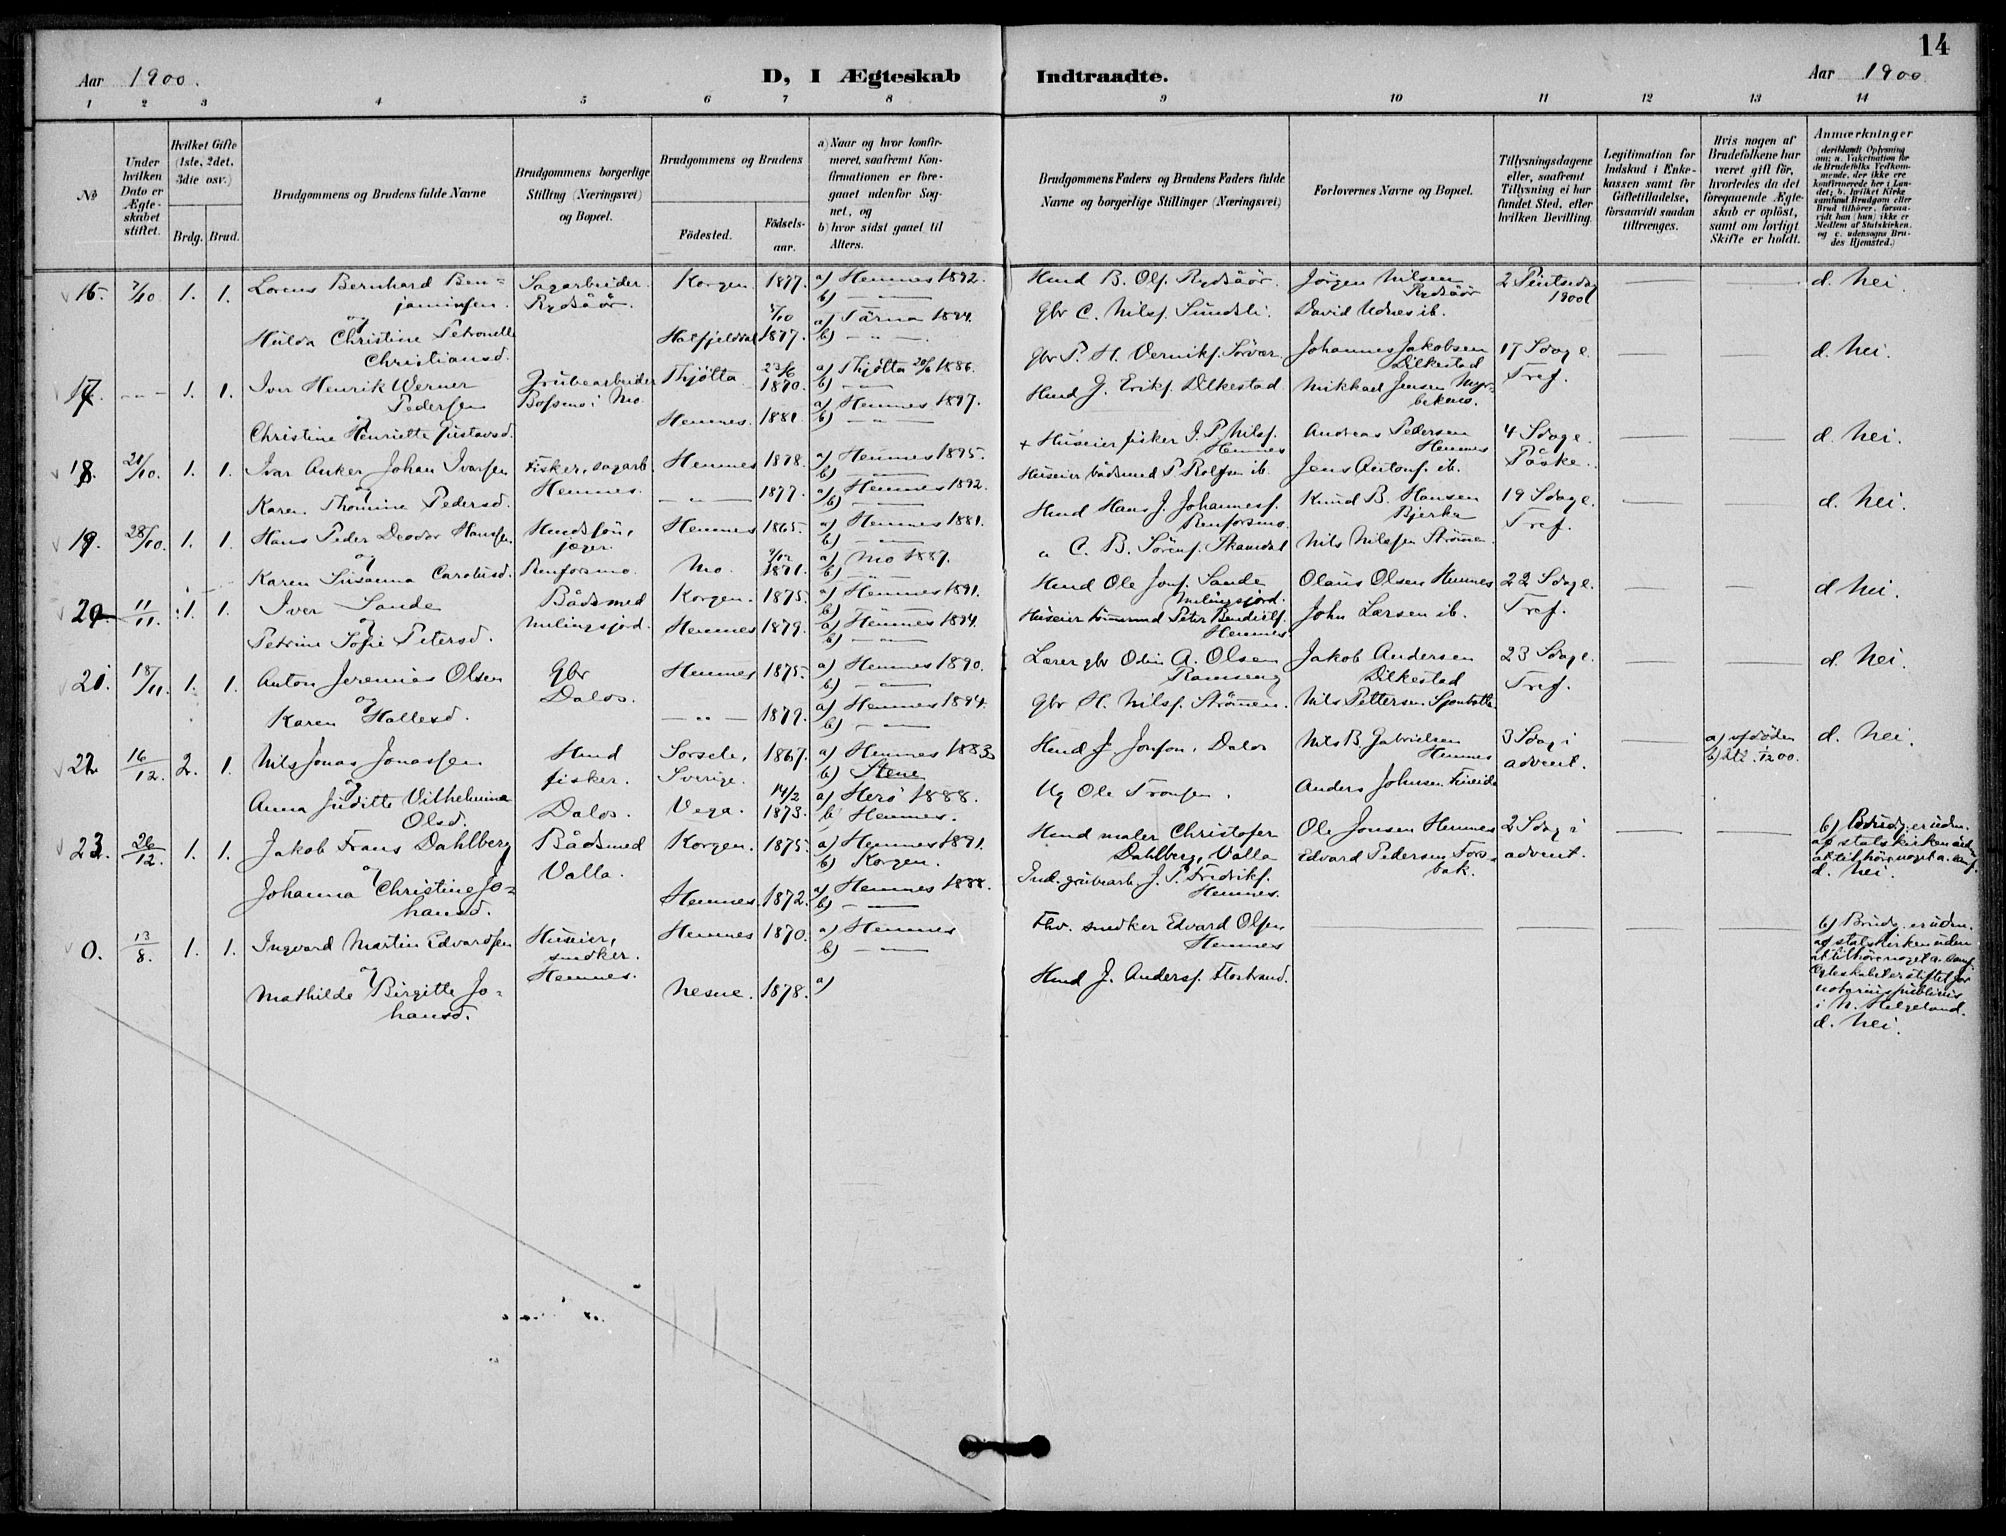 14
Aar 1900. D, I Ægteskab Indtraadte. Aar 1900
1 2 3 4 5 6 7 8 9 10 11 12 13 14
No
Under hvilken Dato er Ægteskabet stiftet.
Hvilket Gifte (1ste, 2det, 3die osv.)
Brdg. Brud.
Brudgommens og Brudens fulde Navne
Brudgommens borgerlige Stilling (Næringsvei) og Bopæl.
Brudgommens og Brudens
Födested. Födselsaar.
a) Naar og hvor konfirmeret, saafremt Konfirmationen er foregaaet udenfor Sognet, og
b) hvor sidst gaaet til Alters.
Brudgommens Faders og Brudens Faders fulde Navne og borgerlige Stillinger (Næringsvei)
Forlovernes Navne og Bopæl.
Tillysningsdagene eller, saafremt Tillysning ei har fundet Sted, efter hvilken Bevilling.
Legitimation for Indskud i Enkekassen samt for Giftetilladelse, forsaavidt saadan tiltrænges.
Hvis nogen af Brudefolkene har været gift før, hvorledes da det foregaaende Ægteskab er oplöst, samt om lovligt Skifte er holdt.
Anmærkninger (deriblandt Oplysning om: a. Vakcination for de Brudefolks Vedkommende, der ikke ere konfirmerede her i Landet; b. hvilket Kirkesamfund Brudgom eller Brud tilhörer, forsaavidt han (hun) ikke er Medlem af Statskirken, og c. udensogns Brudes Hjemsted.)
16. 7/10 1. 1. Lorens Bernhard Benjaminsen. Sagarbeider. Rydsåör. Korgen 1877. a) Hemnes 1892. b) — " — Hmd B. Ols. Rydsåör. Jörgen Nilsen Rydsåör 2 Pintsedag 1900 d. Nei.
og
Hulda Christine Petronelle Christiansd. Hatfjeldal 8/10 1877. a) Tärna 1894. b) — " — Gbr C. Nilss. Sundsli. David Udnes ib.
17. — " — 1. 1. Iver Henrik Werner Pedersen Grubearbeider Bossmo i Mo. Thjötta 23/6 1870. a) Thjötta 20/6 1886. b) — " — Gbr P. H. Vernikss. Sörvær Johannes Jakobsen Dilkestad 17 Sdag e. Tref. d. Nei.
Christine Henriette Gustavsd. Hemnes 1881 a) Hemnes 1897. b) — " — Hmd J. Erikss. Dilkestad Mikkael Jensen Myrbekmo.
18. 21/10. 1. 1. Ivar Anker Johan Ivarsen Fisker, sagarb. Hemnes. Hemnes 1878. a) Hemnes 1895. b) — " — + Huseier fisker I. P. Nilss. Hemnes Andreas Pedersen Hemnes 4 Sdag e. Påske. d. Nei.
og
Karen Thomine Pedersd. — " — 1877. a) Hemnes 1892. b) — " — Huseier bådsmd P. Rolfsen ib. Jens Antons. ib.
19. 28/10. 1. 1. Hans Peder Deodor Hanssen Hmdssön, jæger. Renforsmo. Hemnes 1865. a) Hemnes 1881. b) — " — Hmd Hans J. Johanness. Renforsmo. Knud B. Hansen Bjerka 19 Sdag e. Tref. d. Nei.
og
Karen Susanna Carolusd. Mo. 1871. a) Mo 1887. b) — " — " C. B. Sörens. Skamdal Nils Nilssen Strömen
20. 11/11. 1 1. Iver Sande Bådsmed Milingsjord. Korgen. 1875. a) Hemnes 1891. b) — " — Hmd Ole Jons. Sande Milingsjord. Olaus Olsen Hemnes 22 Sdag e. Tref. d Nei.
og
Petrine Sofie Petersd. Hemnes 1879. a) Hemnes 1894. b) — " — Huseier tömmrmd Peter Bendikss. Hemnes John Larsen ib.
21. 18/11. 1. 1. Anton Jeremias Olsen Gbr Dalos. Hemnes 1875. a) Hemnes 1890. b) — " — Lærer gbr Odin A. Olsen Ramseng Jakob Andersen Dilkestad 23 Sdag e. Tref. d. Nei.
og
Karen Hallesd. — " — 1879. a) Hemnes 1894. b) — " — Gbr H. Nilss. Strömen. Nils Pettersen Sjonbotten
22. 16/12. 2. 1. Nils Jonas Jonassen Hmd fisker. Dalos. Sorsele, Sverige. 1867. a) Hemnes 1883 b) Stene Hmd J. Jonson, Dalos Nils B. Gabrielsen Hemnes 3 Sdag i advent. d. Nei.
og
Anna Juditte Vilhelmina Olsd. Vega. 14/2 1873. a) Herö 1888. b) Hemnes. Ug Ole Tronsen. Anders Johnsen Fineide
23. 26/12. 1. 1. Jakob Frans Dahlberg Bådsmed Valla. Korgen. 1875. a) Hemnes 1891. b) Korgen. Hmd maler Christofer Dahlberg, Valla Ole Jonsen Hemnes 2 Sdag i advent. b) Brudg. er uden. af statskirken uden at tilhøre noget a. samf. d. Nei.
og
Johanna Christine Johansd. Hemnes. 1872. a) Hemnes 1888. b) — " — Ind. grubearb J. P. Fredrikss. Hemnes. Edvard Pedersen Forsbak.
0. 13/8. 1. 1. Ingvard Martin Edvardsen Huseier, snedker. Hemnes. Hemnes 1870. a) Hemnes b) — " — Fhv. snedker Edvard Olsen Hemnes b) Brudg. er uden. af statskirken uden at tilhøre noget a. samf. Ægteskabet er stiftet for notarius publicus i N. Helgeland. d. Nei.
og
Mathilde Birgitte Johansd. Nesne. 1878. a) Hmd J. Anderss. Flostrand.